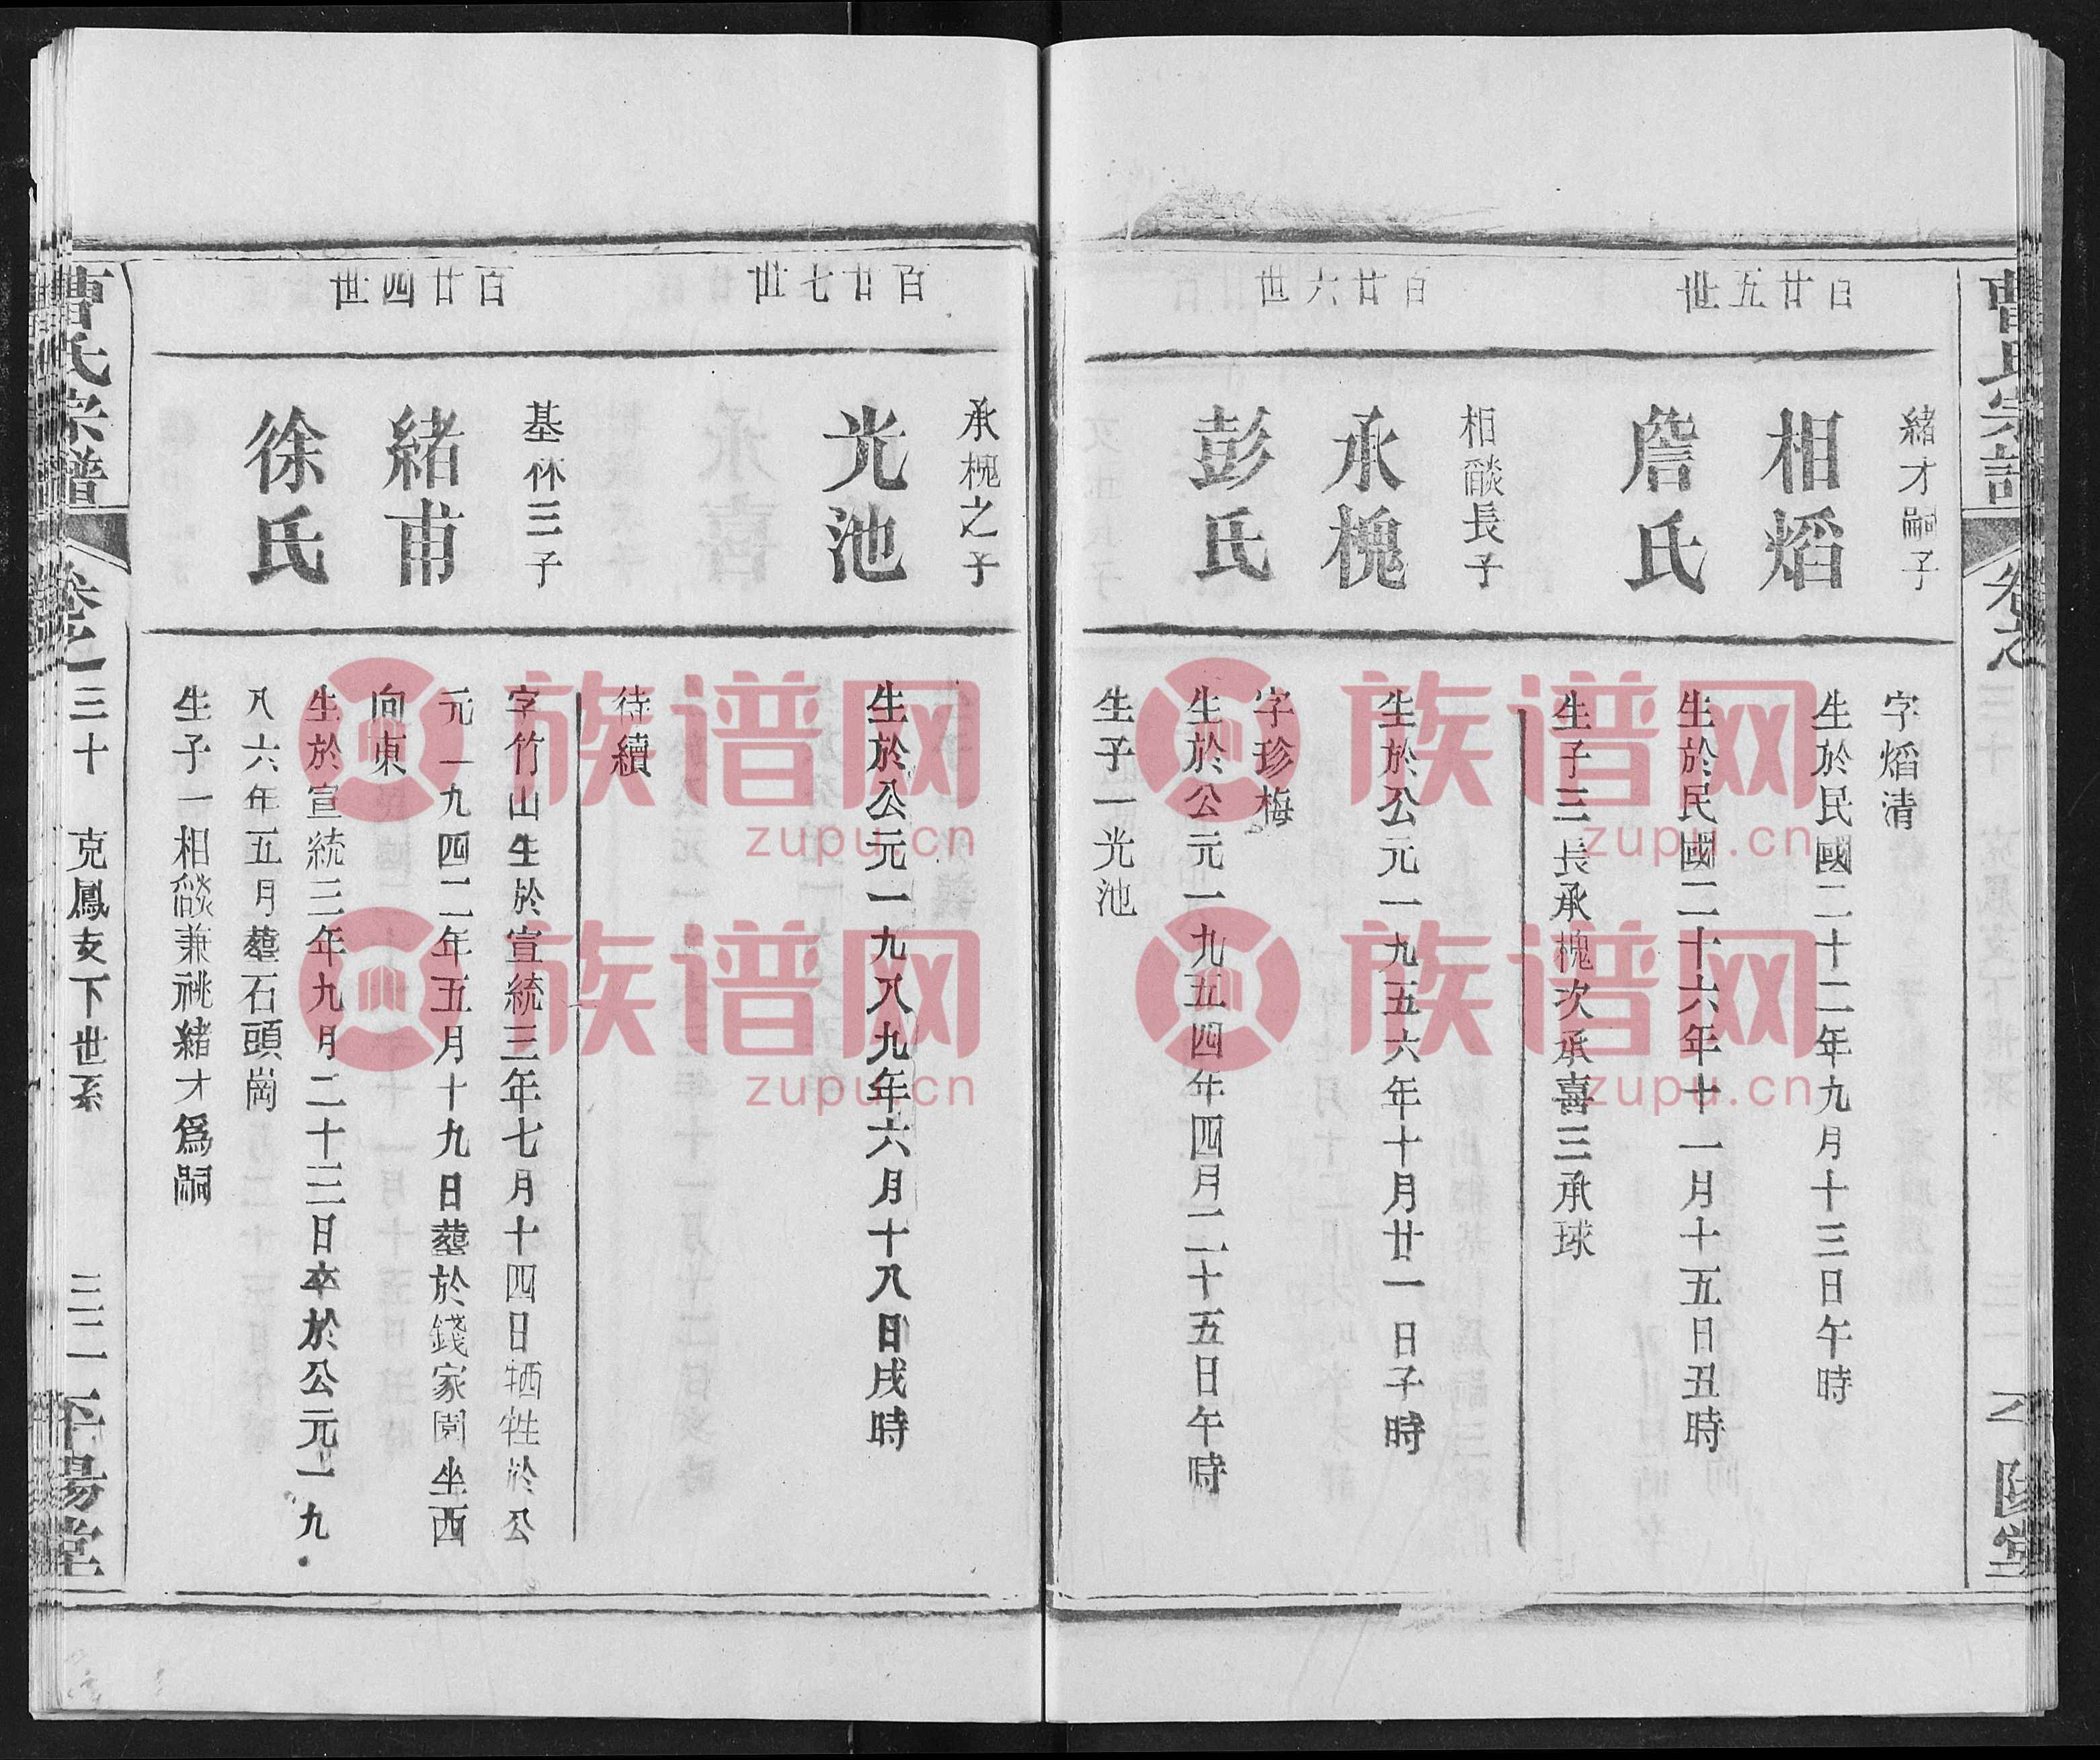 曹氏宗譜
卷之
百廿五世
緒才嗣子
相熖
字熖清
生於民國二十二年九月十三日午時
詹氏
生於民國二十六年十一月十五日丑時
生子三長承槐次承喜三承球
百廿六世
相燄長子
承槐
生於公元一九五六年十月廿一日子時
彭氏
字珍梅
生於公元一九五四年四月二十五日午時
生子一光池
百廿七世
承槐之子
光池
生於公元一九八九年六月十八日戌時
待續
百廿四世
基杯三子
緒甫
字竹山生於宣統三年七月十四日牺牲於公
元一九四二年五月十九日塟於錢家園坐西
向東
徐氏
生於宣統三年九月二十三日卒於公元一九
八六年五月塟石頭崗
生子一相燄兼祧緒才爲嗣
曹氏宗譜
卷之一
三十
克鳳支下世系
平陽堂
族谱网
zupu.cn
族谱网
zupu.cn
族谱网
zupu.cn
族谱网
zupu.cn